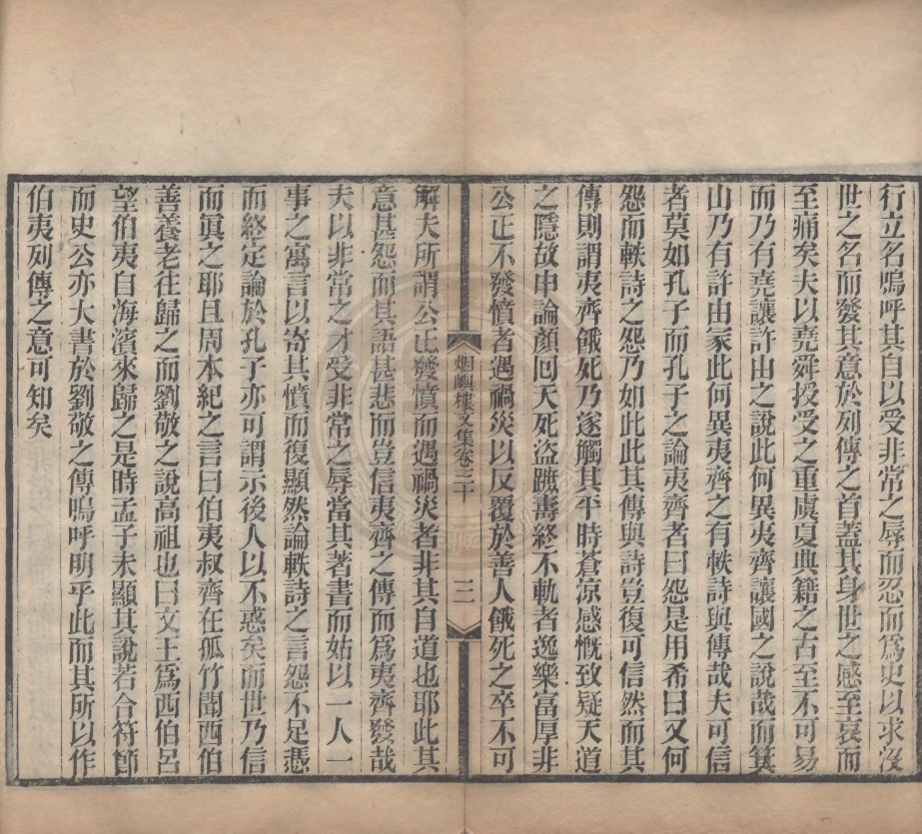 行立名嗚呼其自以受非常之辱而忍而爲史以求沒
世之名而發其意於列傳之首蓋其身世之感至哀而
至痛矣夫以堯舜授受之重虞夏典籍之古至不可易
而乃有堯讓許由之說此何異夷齊讓國之說哉而箕
山乃有許由冢此何異夷齊之有軼詩與傳哉夫可信
者莫如孔子而孔子之論夷齊者曰怨是用希曰又何
怨而軼詩之怨乃如此此其傳與詩豈復可信然而其
傳則謂夷齊餓死乃遂觸其平時蒼涼感慨致疑天道
之隱故申論顏回夭死盜蹠壽終不軌者逸樂富厚非
公正不發憤者遇禍災以反覆於善人餓死之卒不可
烟嶼樓文集卷二十
三
解夫所謂公正發憤而遇禍災者非其自道也耶此其
意甚怨而其語甚悲而豈信夷齊之傳而爲夷齊發哉
夫以非常之才受非常之辱當其著書而姑以一人一
事之寓言以寄其憤而復顯然論軼詩之言怨不足憑
而終定論於孔子亦可謂示後人以不惑矣而世乃信
而眞之耶且周本紀之言曰伯夷叔齊在孤竹聞西伯
善養老往歸之而劉敬之說高祖也曰文王爲西伯呂
望伯夷自海濱來歸之是時孟子未顯其說若合符節
而史公亦大書於劉敬之傳嗚呼明乎此而其所以作
伯夷列傳之意可知矣